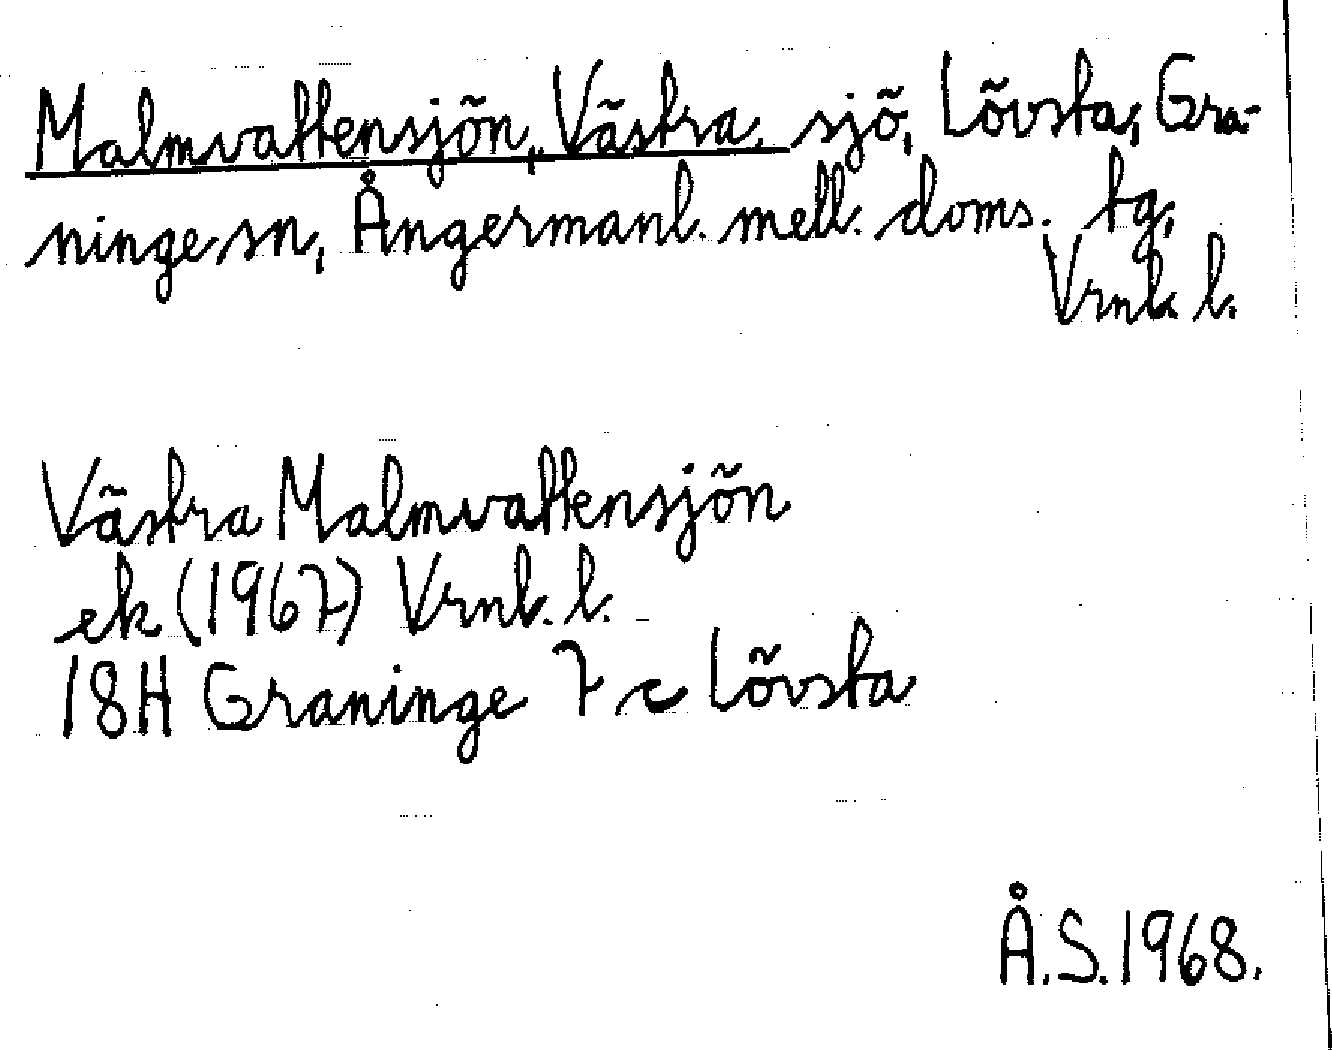 Malmvattensjön, Västra, sjö, Lövsta, Gra-
ninge sn, Ångermanl. mell. doms. tg,
Vrnl. l.
Västra Malmvattensjön
ek (1967) Vrnl. l.
18H Graninge 7 c Lövsta
Å.S. 1968.